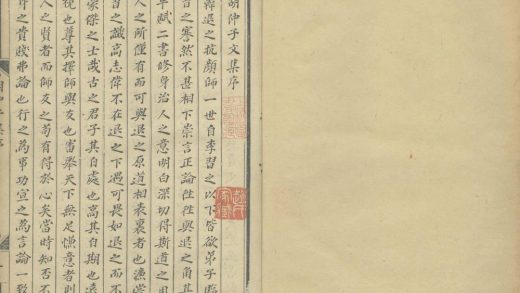 胡仲子文集序
韓退之抗顏師一世自李習之以下皆欲弟子臨
習之謇然不甚相下崇言正論往往與退之角其
平賦二書修身治人之意明白深切得斯道之用
人之所僅有而可與退之原道相表裏者也濂嘗
習之識高志偉不在退之下遇可畏如退之而不
豪傑之士哉古之君子其自處也高其自期也遠
視也尊其擇師與友也審舉天下無足慊意者則
人之賢者而師友之苟有得於心矣當時知否不
之貴賤弗論也行之為事功宣之為言論一致